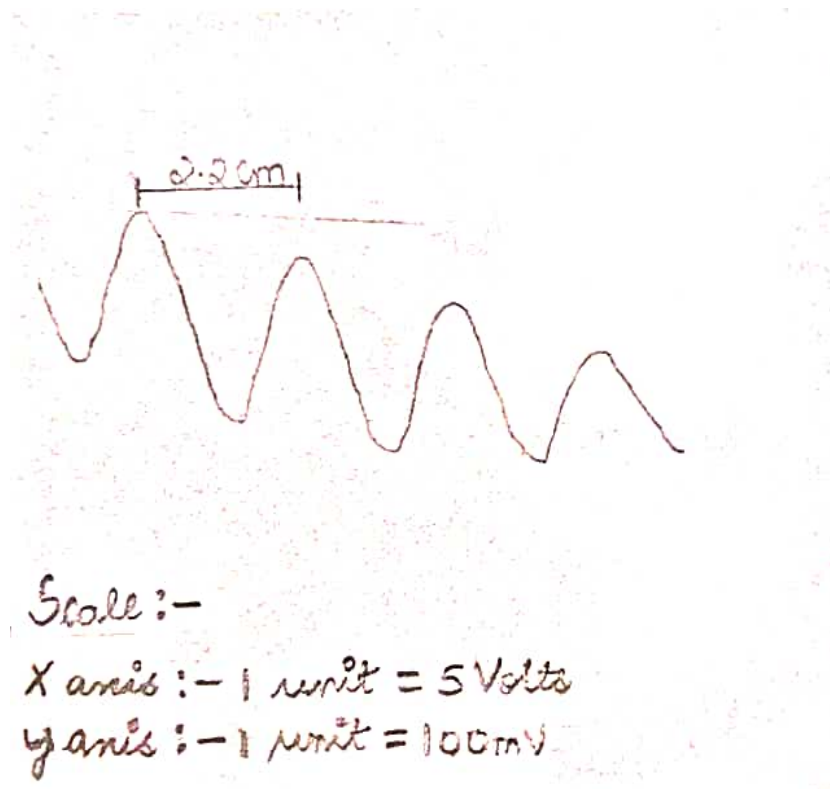 2.2cm
Scale :-
X axis :- 1 unit = 5 Volts
y axis :- 1 unit = 100mV